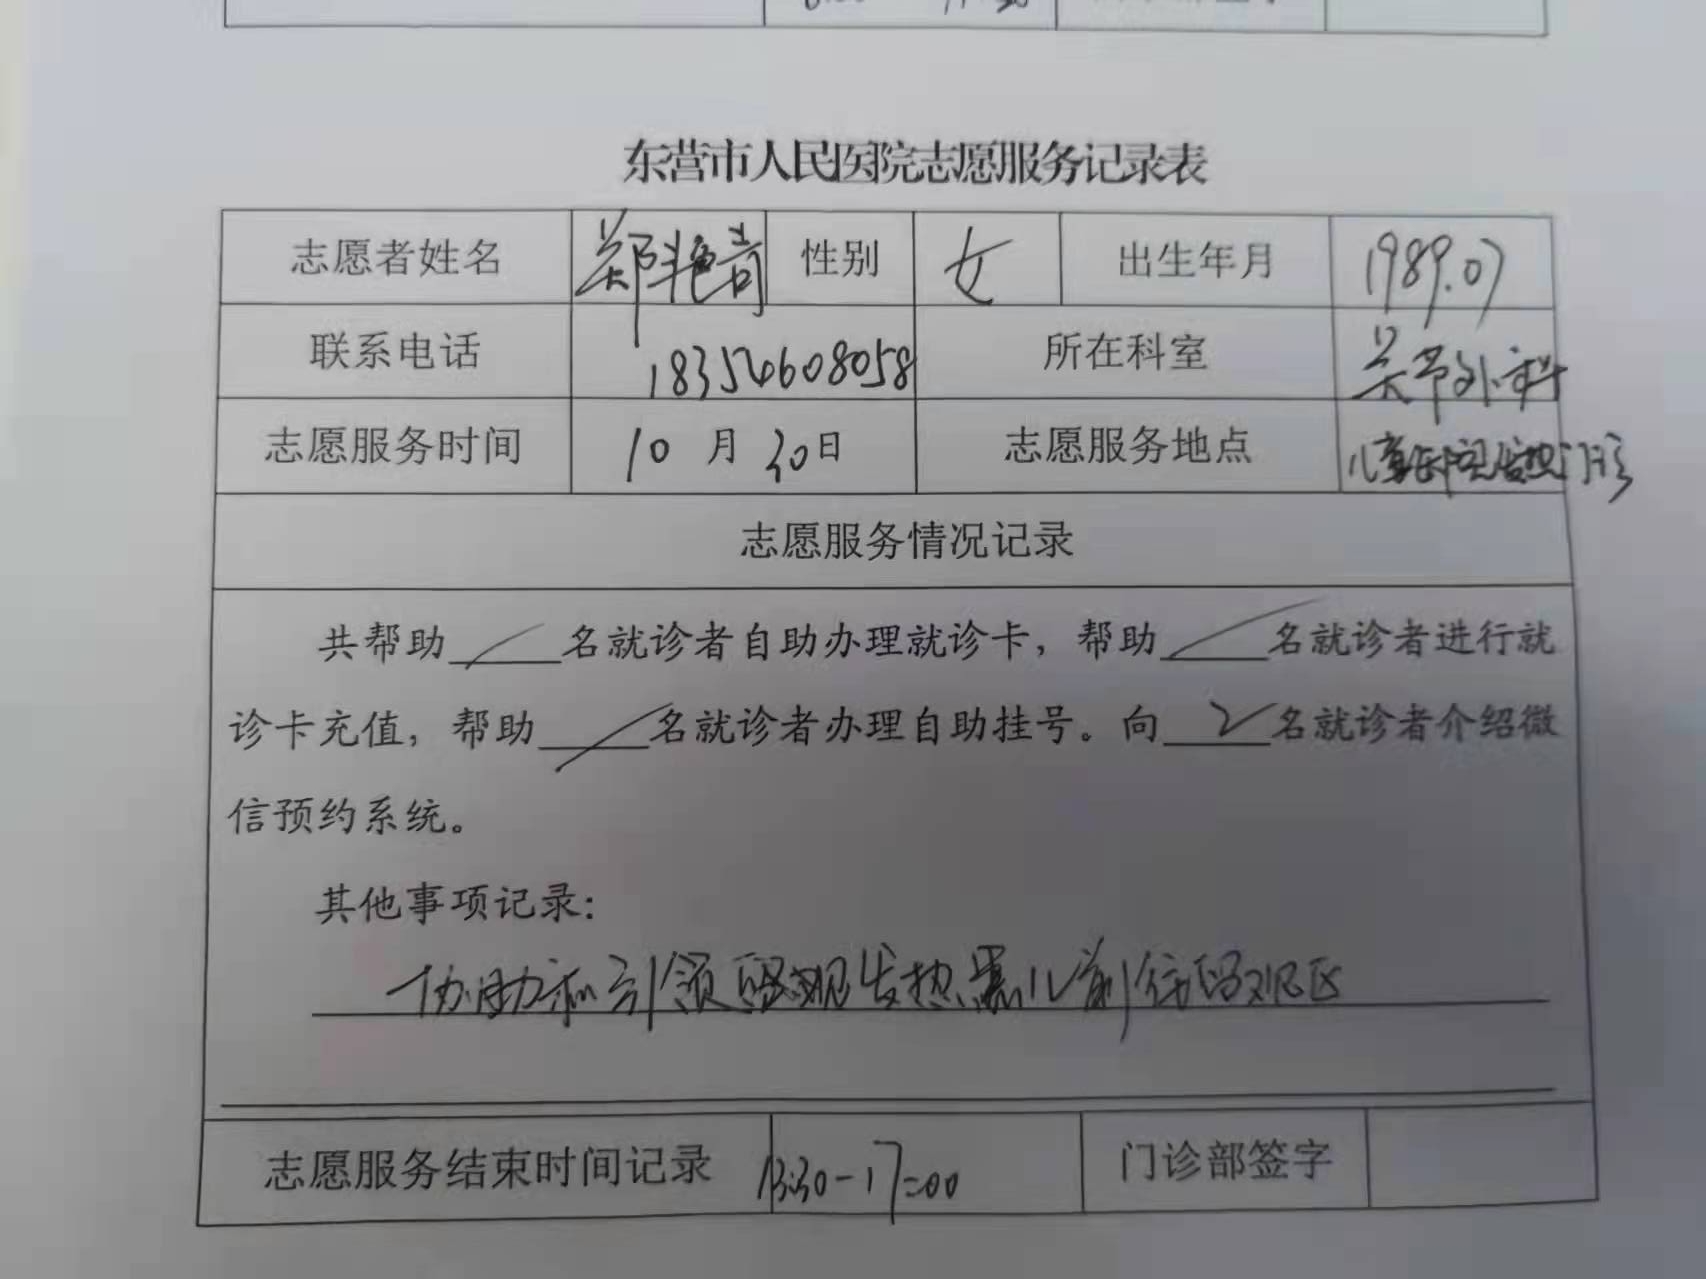 东营市人民医院志愿服务记录表
志愿者姓名 郑艳 性别 女 出生年月 1989.07
联系电话 18354608058 所在科室 关节外科
志愿服务时间 10月30日 志愿服务地点 儿童医院发热门诊
志愿服务情况记录
共帮助 / 名就诊者自助办理就诊卡，帮助 / 名就诊者进行就
诊卡充值，帮助 / 名就诊者办理自助挂号。向 2 名就诊者介绍微
信预约系统。
其他事项记录：
协助和引领留观发热患儿前往留观区
志愿服务结束时间记录 13:30-17:00 门诊部签字